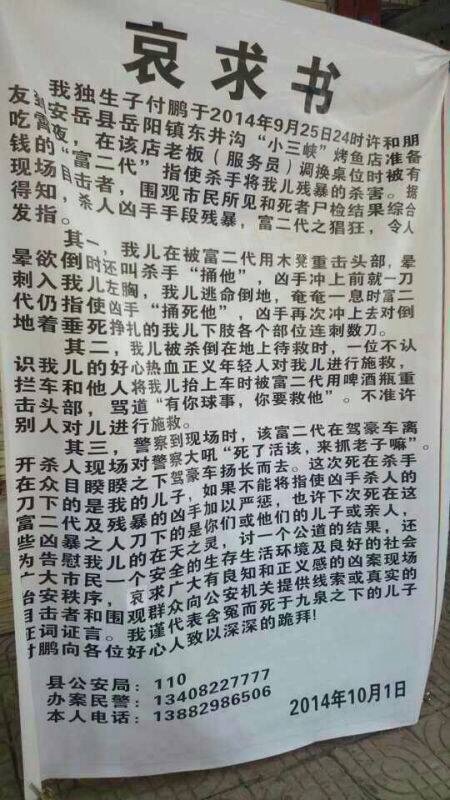 哀求书
我独生子付鹏于2014年9月25日24时许和朋
友到安岳县岳阳镇东井沟“小三峡”烤鱼店准备
吃宵夜，在该店老板（服务员）调换桌位时被有
钱的“富二代”指使杀手将我儿残暴的杀害。据
现场目击者，围观市民所见和死者尸检结果综合
得知，杀人凶手手段残暴，富二代之猖狂，令人
发指。
其一，我儿在被富二代用木凳重击头部，晕
晕欲倒时还叫杀手“捅他”，凶手冲上前就一刀
刺入我儿左胸，我儿逃命倒地，奄奄一息时富二
代仍指使凶手“捅死他”，凶手再次冲上去对倒
地着垂死挣扎的我儿下肢各个部位连刺数刀。
其二，我儿被杀倒在地上待救时，一位不认
识我儿的好心热血正义年轻人对我儿进行施救，
拦车和他人将我儿抬上车时被富二代用啤酒瓶重
击头部，骂道“有你球事，你要救他”。不准许
别人对儿进行施救。
其三，警察到现场时，该富二代在驾豪车离
开杀人现场对警察大吼“死了活该，来抓老子嘛”。
在众目睽睽之下驾豪车扬长而去。这次死在杀手
刀下的是我的儿子，如果不能将指使手杀人的
富二代及残暴的凶手加以严惩，也许下次死在这
些凶暴之人刀下的是你们或他们的儿子或亲人，
为告慰我儿的在天之灵，讨一个公道的结果，还
广大市民一个安全的生存生活环境及良好的社会
治安秩序，哀求广大有良知和正义感的凶案现场
目击者和围观群众向公安机关提供线索或真实的
证词证言。我谨代表含冤而死于九泉之下的儿子
付鹏向各位好心人致以深深的跪拜!
县公安局：110
办案民警：13408227777
本人电话：13882986506
2014年10月1日